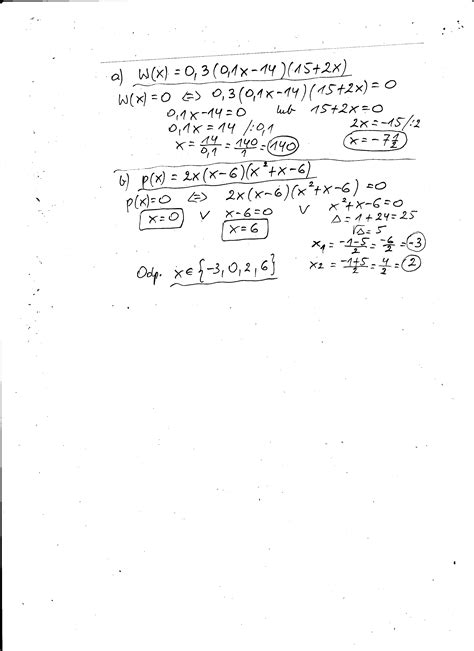 a) W(x) = 0,3(0,1x-14)(15+2x)
W(x)=0 ⇔ 0,3(0,1x-14)(15+2x)=0
0,1x-14=0 lub 15+2x=0
0,1x=14 /:0,1 2x=-15/:2
x=14/0,1=140/1=140 x=-7 1/2
b) P(x) = 2x(x-6)(x²+x-6)
P(x)=0 ⇔ 2x(x-6)(x²+x-6)=0
x=0 ∨ x-6=0 ∨ x²+x-6=0
x=6 Δ=1+24=25
√Δ=5
x₁=(-1-5)/2=-6/2=-3
Odp. x∈{-3,0,2,6} x₂=(-1+5)/2=4/2=2